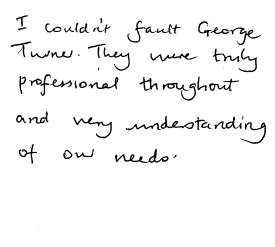 I couldn't fault George
Turner. They were truly
professional throughout
and very understanding
of our needs.